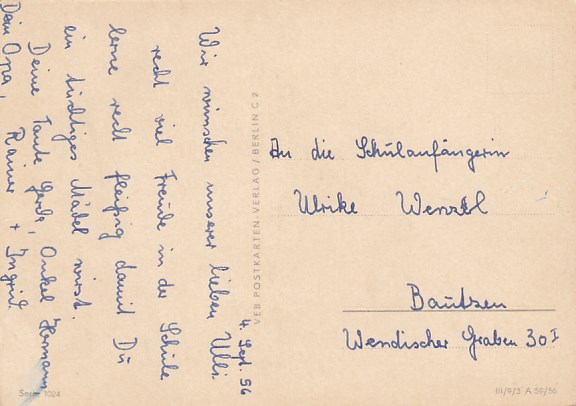 4. Sept. 56
Wir wünschen unserer lieben Ulli
recht viel Freude in der Schule
lerne recht fleißig damit Du
ein tüchtiges Mädel wirst.
Deine Tante Gerda, Onkel Hermann
Dein Opa, Rainer + Ingrid.
VEB POSTKARTEN-VERLAG / BERLIN C 2
An die Schulanfängerin
Ulrike Wenzel
Bautzen
Wendischer Graben 30 I
1024
III/9/3 A 59/56